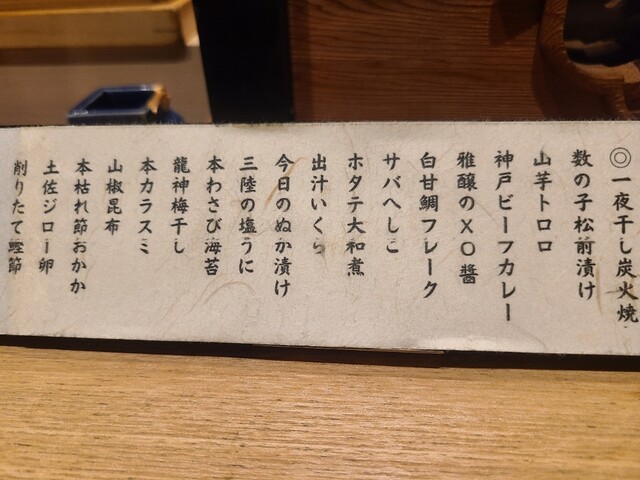 ◎一夜干し炭火焼
数の子松前漬け
山芋トロロ
神戸ビーフカレー
雅醸のXO醬
白甘鯛フレーク
サバへしこ
ホタテ大和煮
出汁いくら
今日のぬか漬け
三陸の塩うに
本わさび海苔
龍神梅干し
本カラスミ
山椒昆布
本枯れ節おかか
土佐ジロー卵
削りたて鰹節